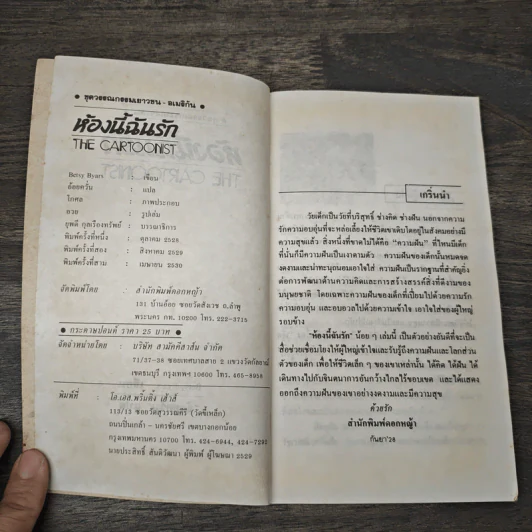 ● ชุดวรรณกรรมเยาวชน - อเมริกัน ●
ห้องนี้ฉันรัก
THE CARTOONIST
Betsy Byars : เขียน
อ้อยควั่น : แปล
โกศล : ภาพประกอบ
อวย : รูปเล่ม
ยุพดี กุลเรืองทรัพย์ : บรรณาธิการ
พิมพ์ครั้งที่หนึ่ง : ตุลาคม 2528
พิมพ์ครั้งที่สอง : สิงหาคม 2529
พิมพ์ครั้งที่สาม : เมษายน 2530
จัดพิมพ์โดย : สำนักพิมพ์ดอกหญ้า
131 บ้านอ้อย ซอยวัดสังเวช ถ.ลำพู
พระนคร กท. 10200 โทร. 222-3715
● กระดาษปอนด์ ราคา 25 บาท ●
จัดจำหน่ายโดย : บริษัท สามัคคีสาส์น จำกัด
71/37-38 ซอยเทศบาลสาย 2 แขวงวัดกัลยาณ์
เขตธนบุรี กรุงเทพฯ 10600 โทร. 465-8958
พิมพ์ที่ : โอ.เอส.พริ้นติ้ง เฮ้าส์
113/13 ซอยวัดสุวรรณคีรี (วัดขี้เหล็ก)
ถนนปิ่นเกล้า - นครชัยศรี เขตบางกอกน้อย
กรุงเทพมหานคร 10700 โทร. 424-6944, 424-7292
นายประสิทธิ์ สันติวัฒนา ผู้พิมพ์ ผู้โฆษณา 2529
เกริ่นนำ
วัยเด็กเป็นวัยที่บริสุทธิ์ ช่างคิด ช่างฝัน นอกจากความ
รักความอบอุ่นที่จะหล่อเลี้ยงให้ชีวิตเขาเติบโตอยู่ในสังคมอย่างมี
ความสุขแล้ว สิ่งหนึ่งที่ขาดไม่ได้คือ “ความฝัน” ที่ไหนมีเด็ก
ที่นั่นก็มีความฝันเป็นเงาตามตัว ความฝันของเด็กนั้นหมดจด
งดงามและน่าทะนุถนอมเอาใจใส่ ความฝันเป็นรากฐานที่สำคัญยิ่ง
ต่อการพัฒนาด้านความคิดและการสร้างสรรค์สิ่งที่ดีงามของ
มนุษยชาติ โดยเฉพาะความฝันของเด็กที่เปี่ยมไปด้วยความรัก
ความอบอุ่น และอบอวลไปด้วยความเข้าใจ เอาใจใส่ของผู้ใหญ่
รอบข้าง
“ห้องนี้ฉันรัก” น้อย ๆ เล่มนี้ เป็นตัวอย่างอันดีที่จะเป็น
สื่อช่วยเชื่อมโยงให้ผู้ใหญ่เข้าใจและรับรู้ถึงความฝันและโลกส่วน
ตัวของเด็ก เพื่อให้ชีวิตเล็ก ๆ ของเขาเหล่านั้น ได้คิด ได้ฝัน ได้
เดินทางไปกับจินตนาการอันกว้างไกลไร้ขอบเขต และได้แสดง
ออกถึงความฝันของเขาอย่างงดงามและมีความสุข
ด้วยรัก
สำนักพิมพ์ดอกหญ้า
กันยา'28